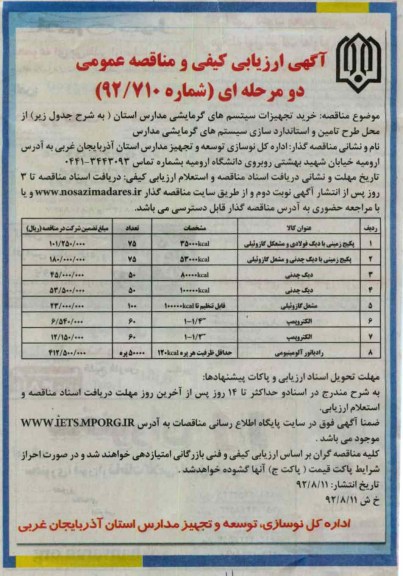 آگهی ارزیابی کیفی و مناقصه عمومی
دو مرحله ای (شماره ۹۲/۷۱۰)
موضوع مناقصه: خرید تجهیزات سیتسم های گرمایشی مدارس استان ( به شرح جدول زیر) از
محل طرح تامین و استاندارد سازی سیستم های گرمایشی مدارس
نام و نشانی مناقصه گذار: اداره کل نوسازی توسعه و تجهیز مدارس استان آذربایجان غربی به آدرس
ارومیه خیابان شهید بهشتی روبروی دانشگاه ارومیه بشماره تماس ۳۴۴۳۰۹۳-۰۴۴۱
تاریخ مهلت و نشانی دریافت اسناد مناقصه و استعلام ارزیابی کیفی: دریافت اسناد مناقصه تا ۳
روز پس از انتشار آگهی نوبت دوم و از طریق سایت مناقصه گذار www.nosazimadares.ir و یا
با مراجعه حضوری به آدرس مناقصه گذار قابل دسترسی می باشد.
ردیف عنوان کالا مشخصات تعداد مبلغ تضمین شرکت در مناقصه (ریال)
۱ پکیج زمینی با دیگ فولادی و مشعلگازوئیلی ۳۵۰۰۰kcal ۷۵ ۱۰۱/۲۵۰/۰۰۰
۲ پکیج زمینی با دیگ چدنی و مشعل گازوئیلی ۵۳۰۰۰kcal ۷۵ ۱۸۰/۰۰۰/۰۰۰
۳ دیگ چدنی ۸۰۰۰۰kcal ۵۰ ۴۵/۰۰۰/۰۰۰
۴ دیگ چدنی ۱۰۰۰۰۰kcal ۵۰ ۵۳/۵۰۰/۰۰۰
۵ مشعل گازوئیلی قابل تنظیم تا ۱۰۰۰۰۰kcal ۱۰۰ ۴۳/۰۰۰/۰۰۰
۶ الکتروپمپ ۶۰ ۶/۵۴۰/۰۰۰
۷ الکتروپمپ ۶۰ ۱۲/۱۵۰/۰۰۰
۸ رادیاتور آلومینیومی حداقل ظرفیت هر پره ۱۲۰kcal ۵۰۰۰۰ پره ۴۱۲/۵۰۰/۰۰۰
مهلت تحویل اسناد ارزیابی و پاکات پیشنهادها:
به شرح مندرج در اسنادو حداکثر تا ۱۴ روز پس از آخرین روز مهلت دریافت اسناد مناقصه و
استعلام ارزیابی.
ضمنا آگهی فوق در سایت پایگاه اطلاع رسانی مناقصات به آدرس WWW.IETS.MPORG.IR
موجود می باشد .
کلیه مناقصه گران بر اساس ارزیابی کیفی و فنی بازرگانی امتیازدهی خواهند شد و در صورت احراز
شرایط پاکت قیمت ( پاکت ج) آنها گشوده خواهدشد .
تاریخ انتشار: ۹۲/۸/۱۱
خ ش ۹۲/۸/۱۱
اداره کل نوسازی، توسعه و تجهیز مدارس استان آذربایجان غربی